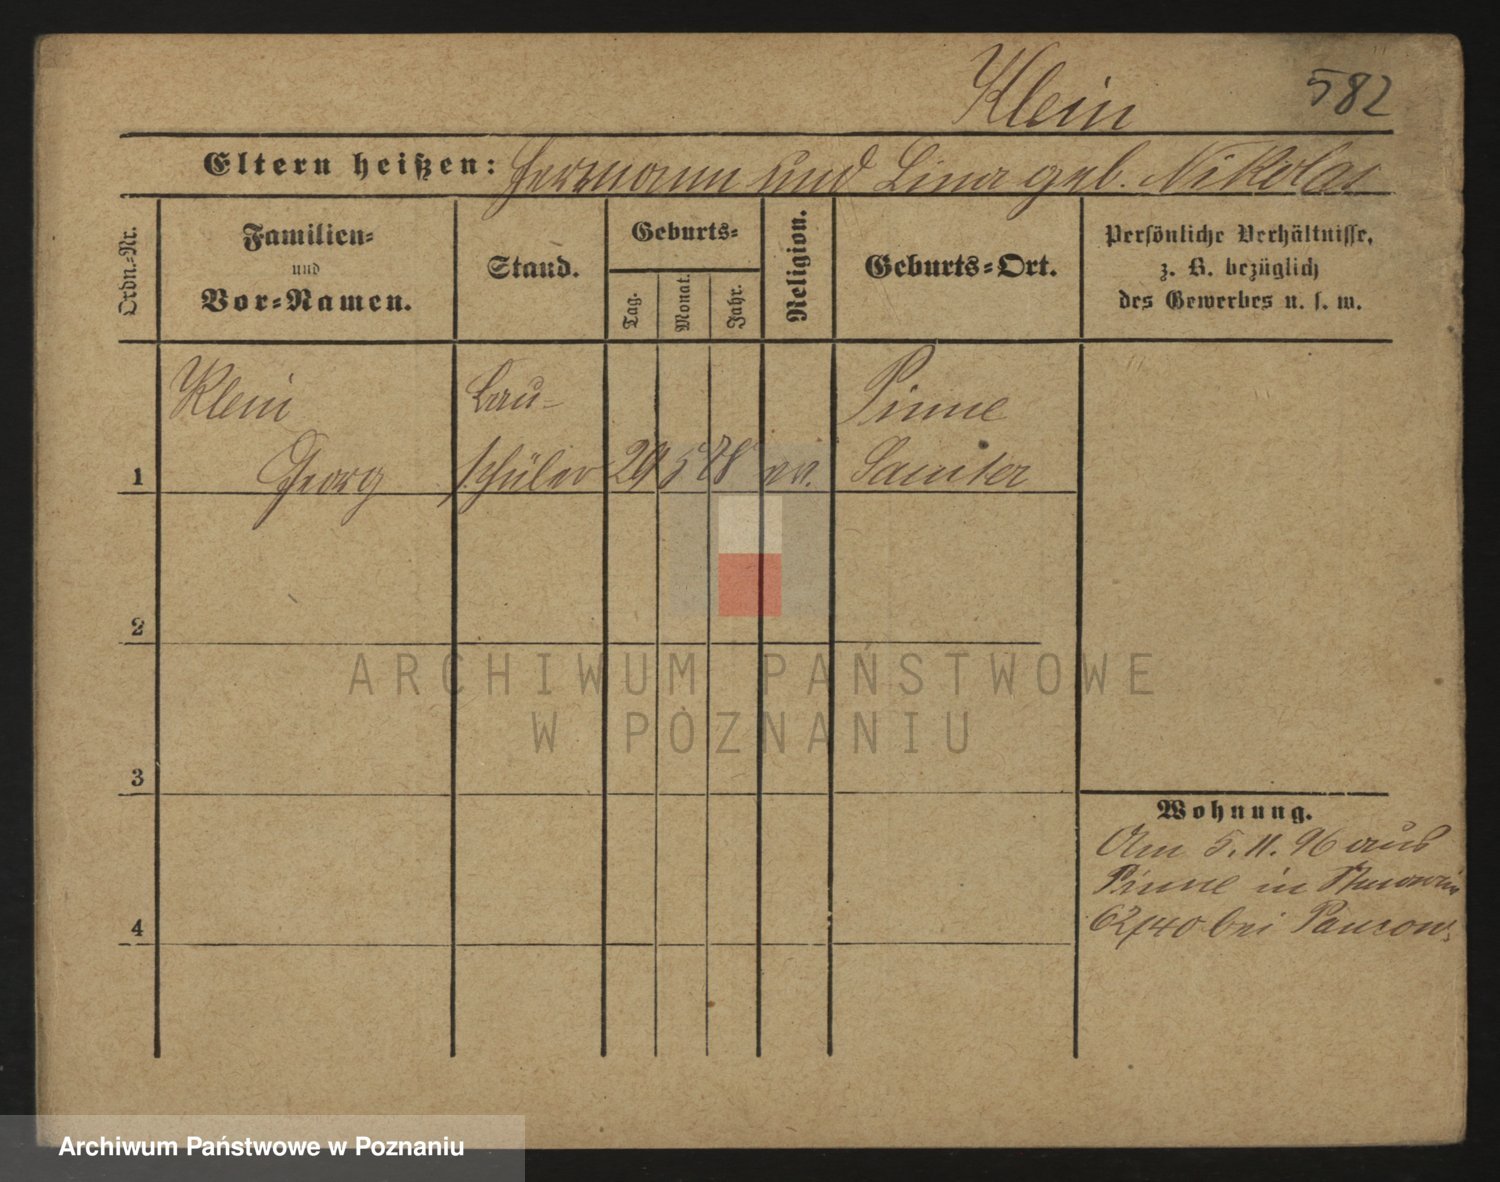 Klein
582
Eltern heißen: Hermann und Lina geb. Nikolai
Ordn.-Nr.
Familien-
und
Vor-Namen.
Stand.
Geburts-
Tag.
Monat.
Jahr.
Religion.
Geburts-Ort.
Persönliche Verhältnisse,
z. B. bezüglich
des Gewerbes u. s. w.
Klein Bau- Pinne
1 Georg schüler 29 5 78 ev. Samter
2
3
4
ARCHIWUM PAŃSTWOWE
W POZNANIU
Wohnung.
Am 5.11.96 aus
Pinne in
bei
Archiwum Państwowe w Poznaniu